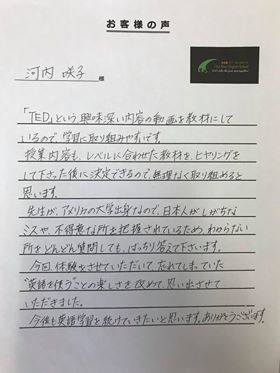 お客様の声
河内 咲子 様
「TED」という興味深い内容の動画を教材にして
いるので、学習に取り組みやすいです。
授業内容も、レベルに合わせた教材を、ヒヤリングを
して下さった後に決定できるので、無理なく取り組めると
思います。
先生が、アメリカの大学出身なので、日本人がしがちな
ミスや、不得意な所を把握されているため、わからない
所をどんどん質問しても、はっきり答えて下さいます。
今回、体験をさせていただいて、忘れてしまっていた
"英語を使う"ことの楽しさを改めて、思い出させて
いただきました。
今後も英語学習を続けていきたいと思います。ありがとうございます。